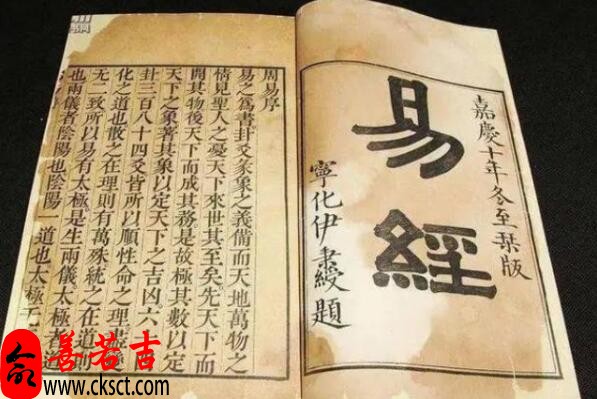 嘉慶十年冬至栞版
易經
寧化伊秉綬題
周易序
易之為書卦爻彖象之義備而天地萬物之
情見聖人之憂天下來世其至矣先天下而
開其物後天下而成其務是故極其數以定
天下之象著其象以定天下之吉凶六
卦三百八十四爻皆所以順性命之理盡
化之道也散之在理則有萬殊統之在道則
無二致所以易有太極是生兩儀太極者道
也兩儀者陰陽也陰陽一道也太極
善若吉
www.cksct.com